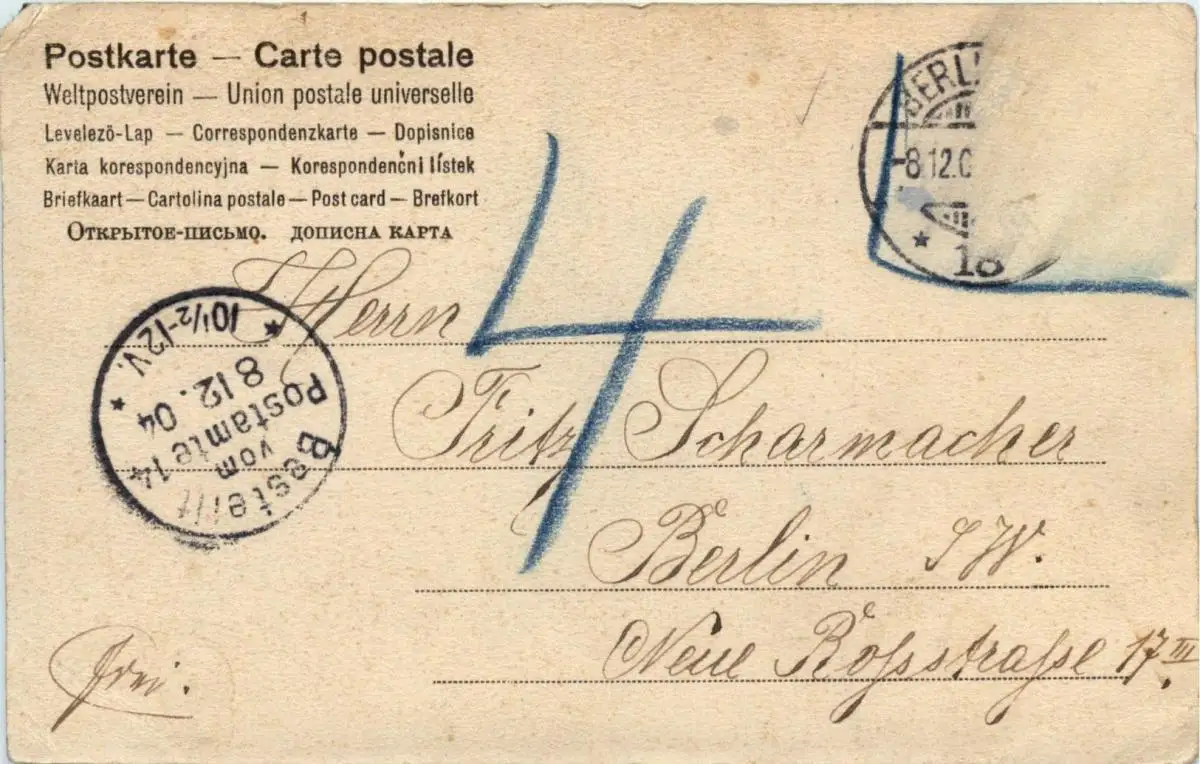 Postkarte — Carte postale
Weltpostverein — Union postale universelle
Levelező-Lap — Correspondenzkarte — Dopisnice
Karta korespondencyjna — Korespondenčni lístek
Briefkaart — Cartolina postale — Post card — Brefkort
Открытое-письмо. дописна карта
BERLI
-8.12.0
18
4
10½-12V.
8 12. 04
Postamte 14
vom
Bestellt
Herrn
Fritz Scharmacher
Berlin SW.
Neue Roßstraße 17 III
frei.